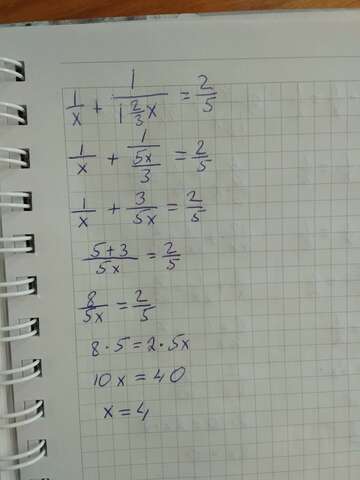 1/x + 1/(1 2/3 x) = 2/5
1/x + 1/(5x/3) = 2/5
1/x + 3/5x = 2/5
5+3/5x = 2/5
8/5x = 2/5
8·5=2·5x
10x=40
x=4